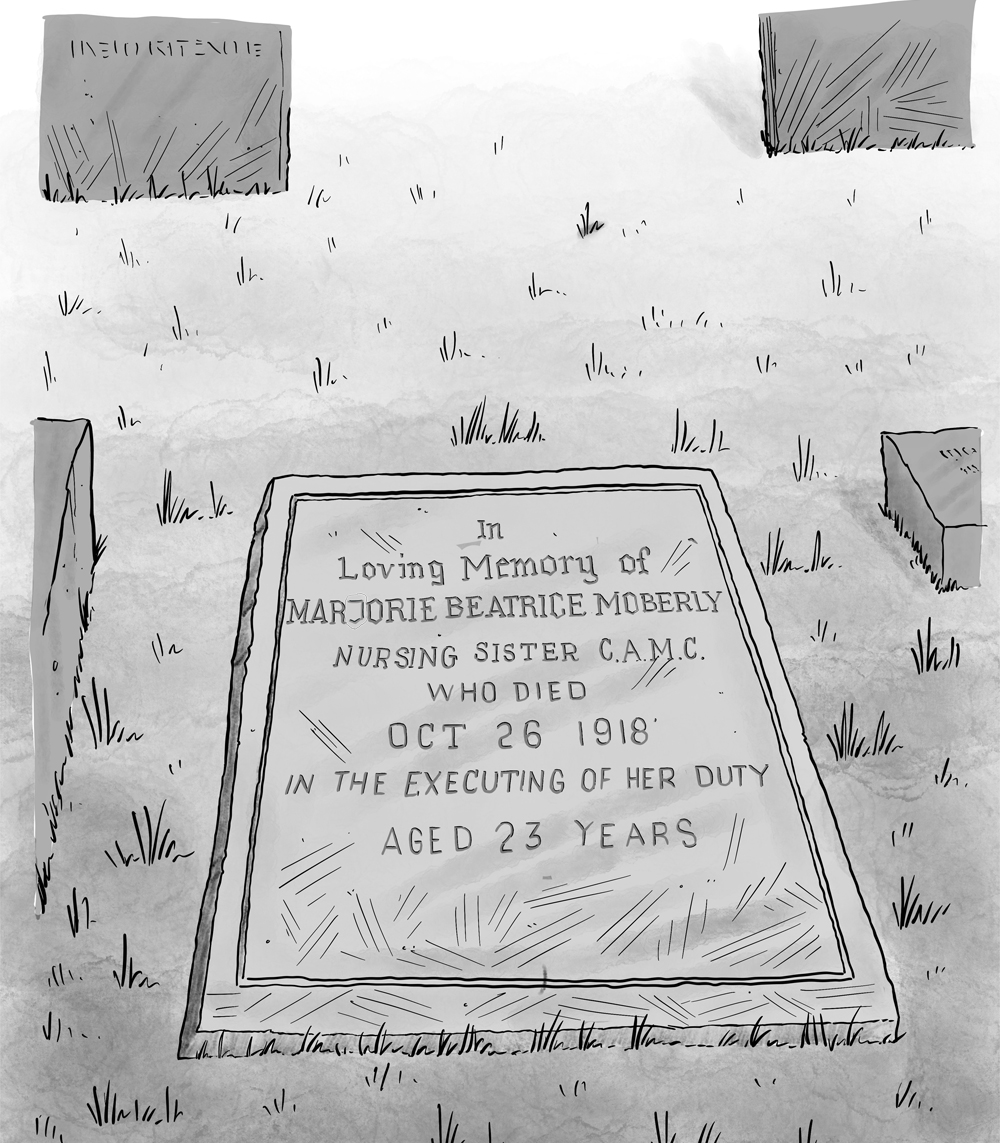 In
Loving Memory of
MARJORIE BEATRICE MOBERLY
NURSING SISTER C.A.M.C.
WHO DIED
OCT 26 1918
IN THE EXECUTING OF HER DUTY
AGED 23 YEARS